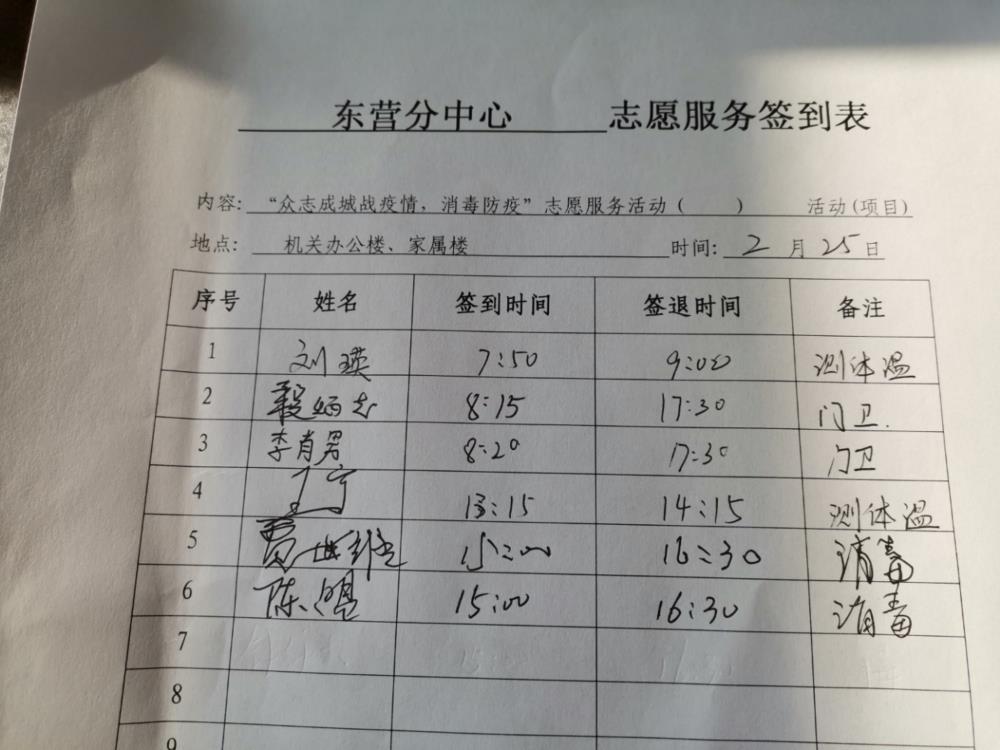 东营分中心 志愿服务签到表
内容: “众志成城战疫情，消毒防疫”志愿服务活动（ ） 活动(项目)
地点: 机关办公楼、家属楼 时间: 2 月 25 日
序号 姓名 签到时间 签退时间 备注
1 刘瑛 7:50 9:00 测体温
2 8:15 17:30 门卫.
3 李肖男 8:20 17:30 门卫
4 王宁 13:15 14:15 测体温
5 贾世维 15:00 16:30 消毒
6 陈 15:00 16:30 消毒
7
8
9